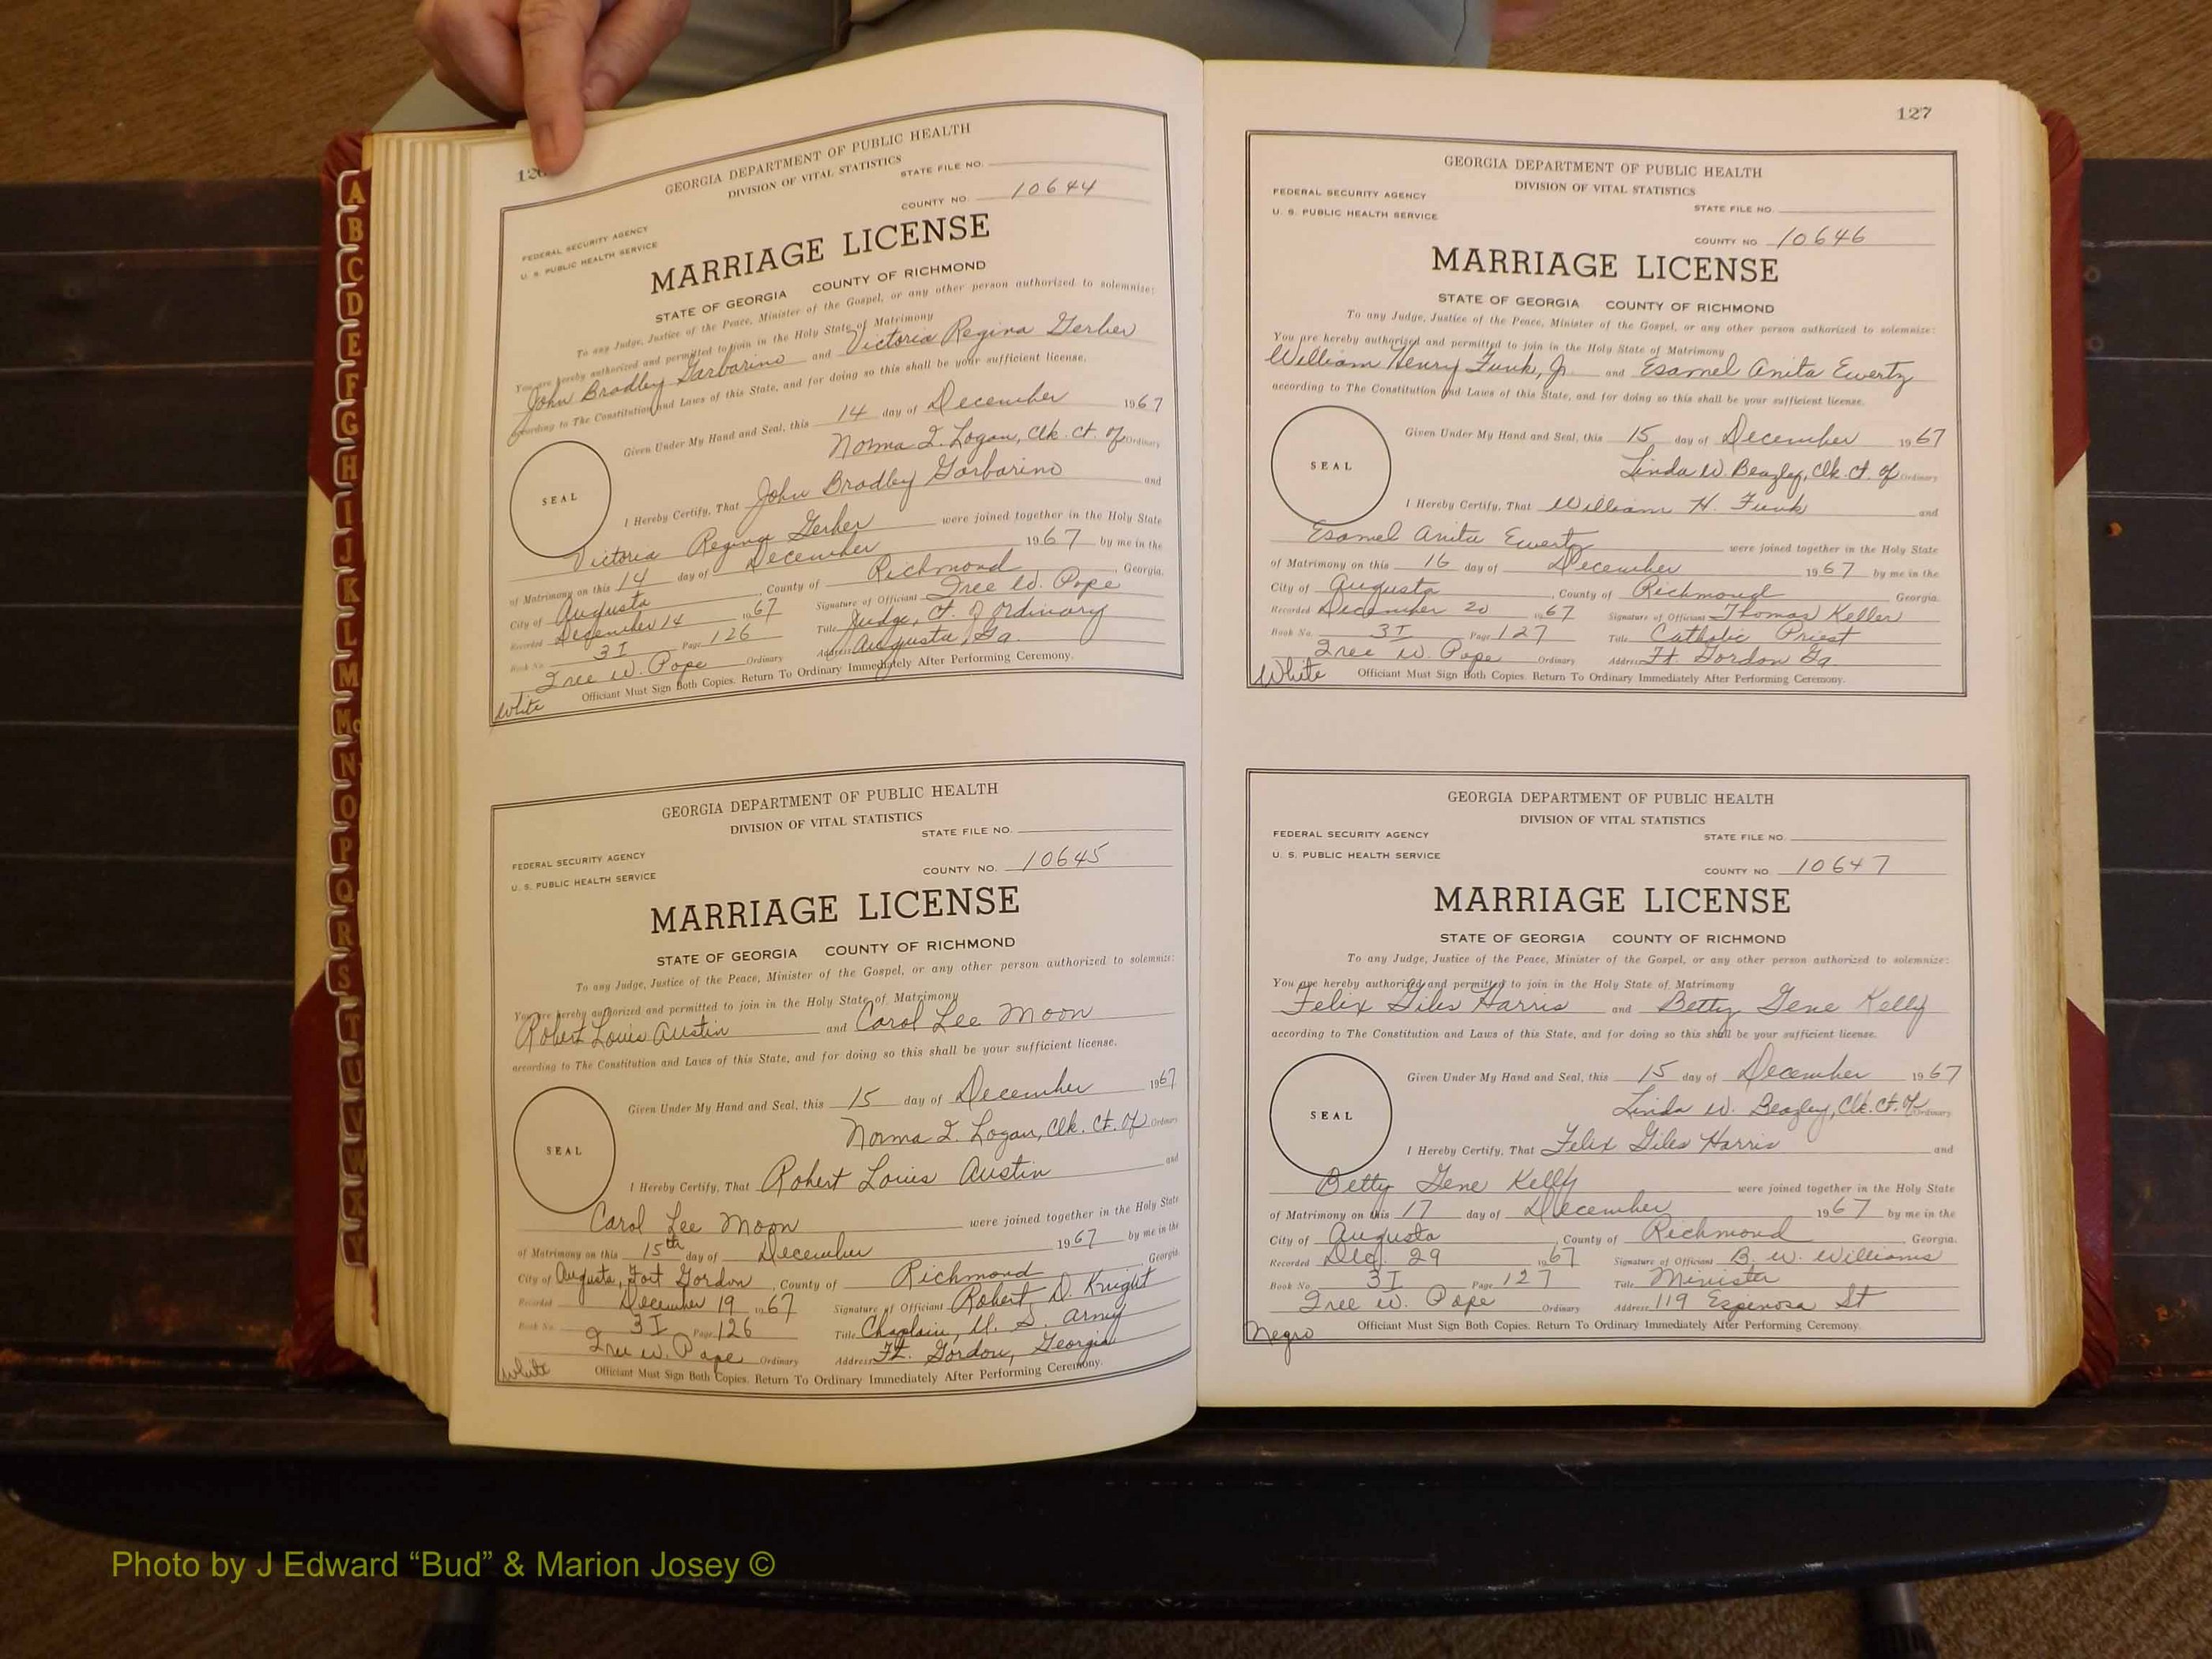 126
GEORGIA DEPARTMENT OF PUBLIC HEALTH
DIVISION OF VITAL STATISTICS
STATE FILE NO.
COUNTY NO. 10644
FEDERAL SECURITY AGENCY
U. S. PUBLIC HEALTH SERVICE
MARRIAGE LICENSE
STATE OF GEORGIA COUNTY OF RICHMOND
To any Judge, Justice of the Peace, Minister of the Gospel, or any other person authorized to solemnize:
You are hereby authorized and permitted to join in the Holy State of Matrimony
John Bradley Garbarino and Victoria Regina Gerber
according to The Constitution and Laws of this State, and for doing so this shall be your sufficient license.
Given Under My Hand and Seal, this 14 day of December 1967
Norma I. Logan, Clk. Ct. of Ordinary
SEAL
I Hereby Certify, That John Bradley Garbarino and
Victoria Regina Gerber were joined together in the Holy State
of Matrimony on this 14 day of December 1967 by me in the
City of Augusta, County of Richmond, Georgia.
Recorded December 14 1967 Signature of Officiant Iree W. Pope
Book No. 3I Page 126 Title Judge, Ct. of Ordinary
Iree W. Pope Ordinary Address Augusta, Ga.
White Officiant Must Sign Both Copies. Return To Ordinary Immediately After Performing Ceremony.
GEORGIA DEPARTMENT OF PUBLIC HEALTH
DIVISION OF VITAL STATISTICS
STATE FILE NO.
FEDERAL SECURITY AGENCY
U. S. PUBLIC HEALTH SERVICE
COUNTY NO. 10645
MARRIAGE LICENSE
STATE OF GEORGIA COUNTY OF RICHMOND
To any Judge, Justice of the Peace, Minister of the Gospel, or any other person authorized to solemnize:
You are hereby authorized and permitted to join in the Holy State of Matrimony
Robert Louis Austin and Carol Lee Moon
according to The Constitution and Laws of this State, and for doing so this shall be your sufficient license.
Given Under My Hand and Seal, this 15 day of December 1967
Norma I. Logan, Clk. Ct. of Ordinary
SEAL
I Hereby Certify, That Robert Louis Austin and
Carol Lee Moon were joined together in the Holy State
of Matrimony on this 15th day of December 1967 by me in the
City of Augusta, Fort Gordon, County of Richmond Georgia.
Recorded December 19 1967 Signature of Officiant Robert D. Knight
Book No. 3I Page 126 Title Chaplain, U. S. Army
Iree W. Pope Ordinary Address Ft. Gordon, Georgia
White Officiant Must Sign Both Copies. Return To Ordinary Immediately After Performing Ceremony.
127
GEORGIA DEPARTMENT OF PUBLIC HEALTH
DIVISION OF VITAL STATISTICS
FEDERAL SECURITY AGENCY
STATE FILE NO.
U. S. PUBLIC HEALTH SERVICE
COUNTY NO. 10646
MARRIAGE LICENSE
STATE OF GEORGIA COUNTY OF RICHMOND
To any Judge, Justice of the Peace, Minister of the Gospel, or any other person authorized to solemnize:
You are hereby authorized and permitted to join in the Holy State of Matrimony
William Henry Funk, Jr. and Esamel Anita Ewertz
according to The Constitution and Laws of this State, and for doing so this shall be your sufficient license.
Given Under My Hand and Seal, this 15 day of December 1967
Linda W. Beazley, Clk. Ct. of Ordinary
SEAL
I Hereby Certify, That William H. Funk and
Esamel Anita Ewertz were joined together in the Holy State
of Matrimony on this 16 day of December 1967 by me in the
City of Augusta, County of Richmond Georgia.
Recorded December 20 1967 Signature of Officiant Thomas Keller
Book No. 3I Page 127 Title Catholic Priest
Iree W. Pope Ordinary Address Ft. Gordon Ga.
White Officiant Must Sign Both Copies. Return To Ordinary Immediately After Performing Ceremony.
GEORGIA DEPARTMENT OF PUBLIC HEALTH
DIVISION OF VITAL STATISTICS
FEDERAL SECURITY AGENCY
STATE FILE NO.
U. S. PUBLIC HEALTH SERVICE
COUNTY NO. 10647
MARRIAGE LICENSE
STATE OF GEORGIA COUNTY OF RICHMOND
To any Judge, Justice of the Peace, Minister of the Gospel, or any other person authorized to solemnize:
You are hereby authorized and permitted to join in the Holy State of Matrimony
Felix Giles Harris and Betty Gene Kelly
according to The Constitution and Laws of this State, and for doing so this shall be your sufficient license.
Given Under My Hand and Seal, this 15 day of December 1967
Linda W. Beazley, Clk. Ct. of Ordinary
SEAL
I Hereby Certify, That Felix Giles Harris and
Betty Gene Kelly were joined together in the Holy State
of Matrimony on this 17 day of December 1967 by me in the
City of Augusta, County of Richmond, Georgia.
Recorded Dec. 29 1967 Signature of Officiant B. W. Williams
Book No. 3I Page 127 Title Minister
Iree W. Pope Ordinary Address 119 Espinosa St
Negro Officiant Must Sign Both Copies. Return To Ordinary Immediately After Performing Ceremony.
A
B
C
D
E
F
G
H
I
J
K
L
M
Mc
N
O
P
Q
R
S
T
U
V
W
X
Y
Photo by J Edward “Bud” & Marion Josey ©